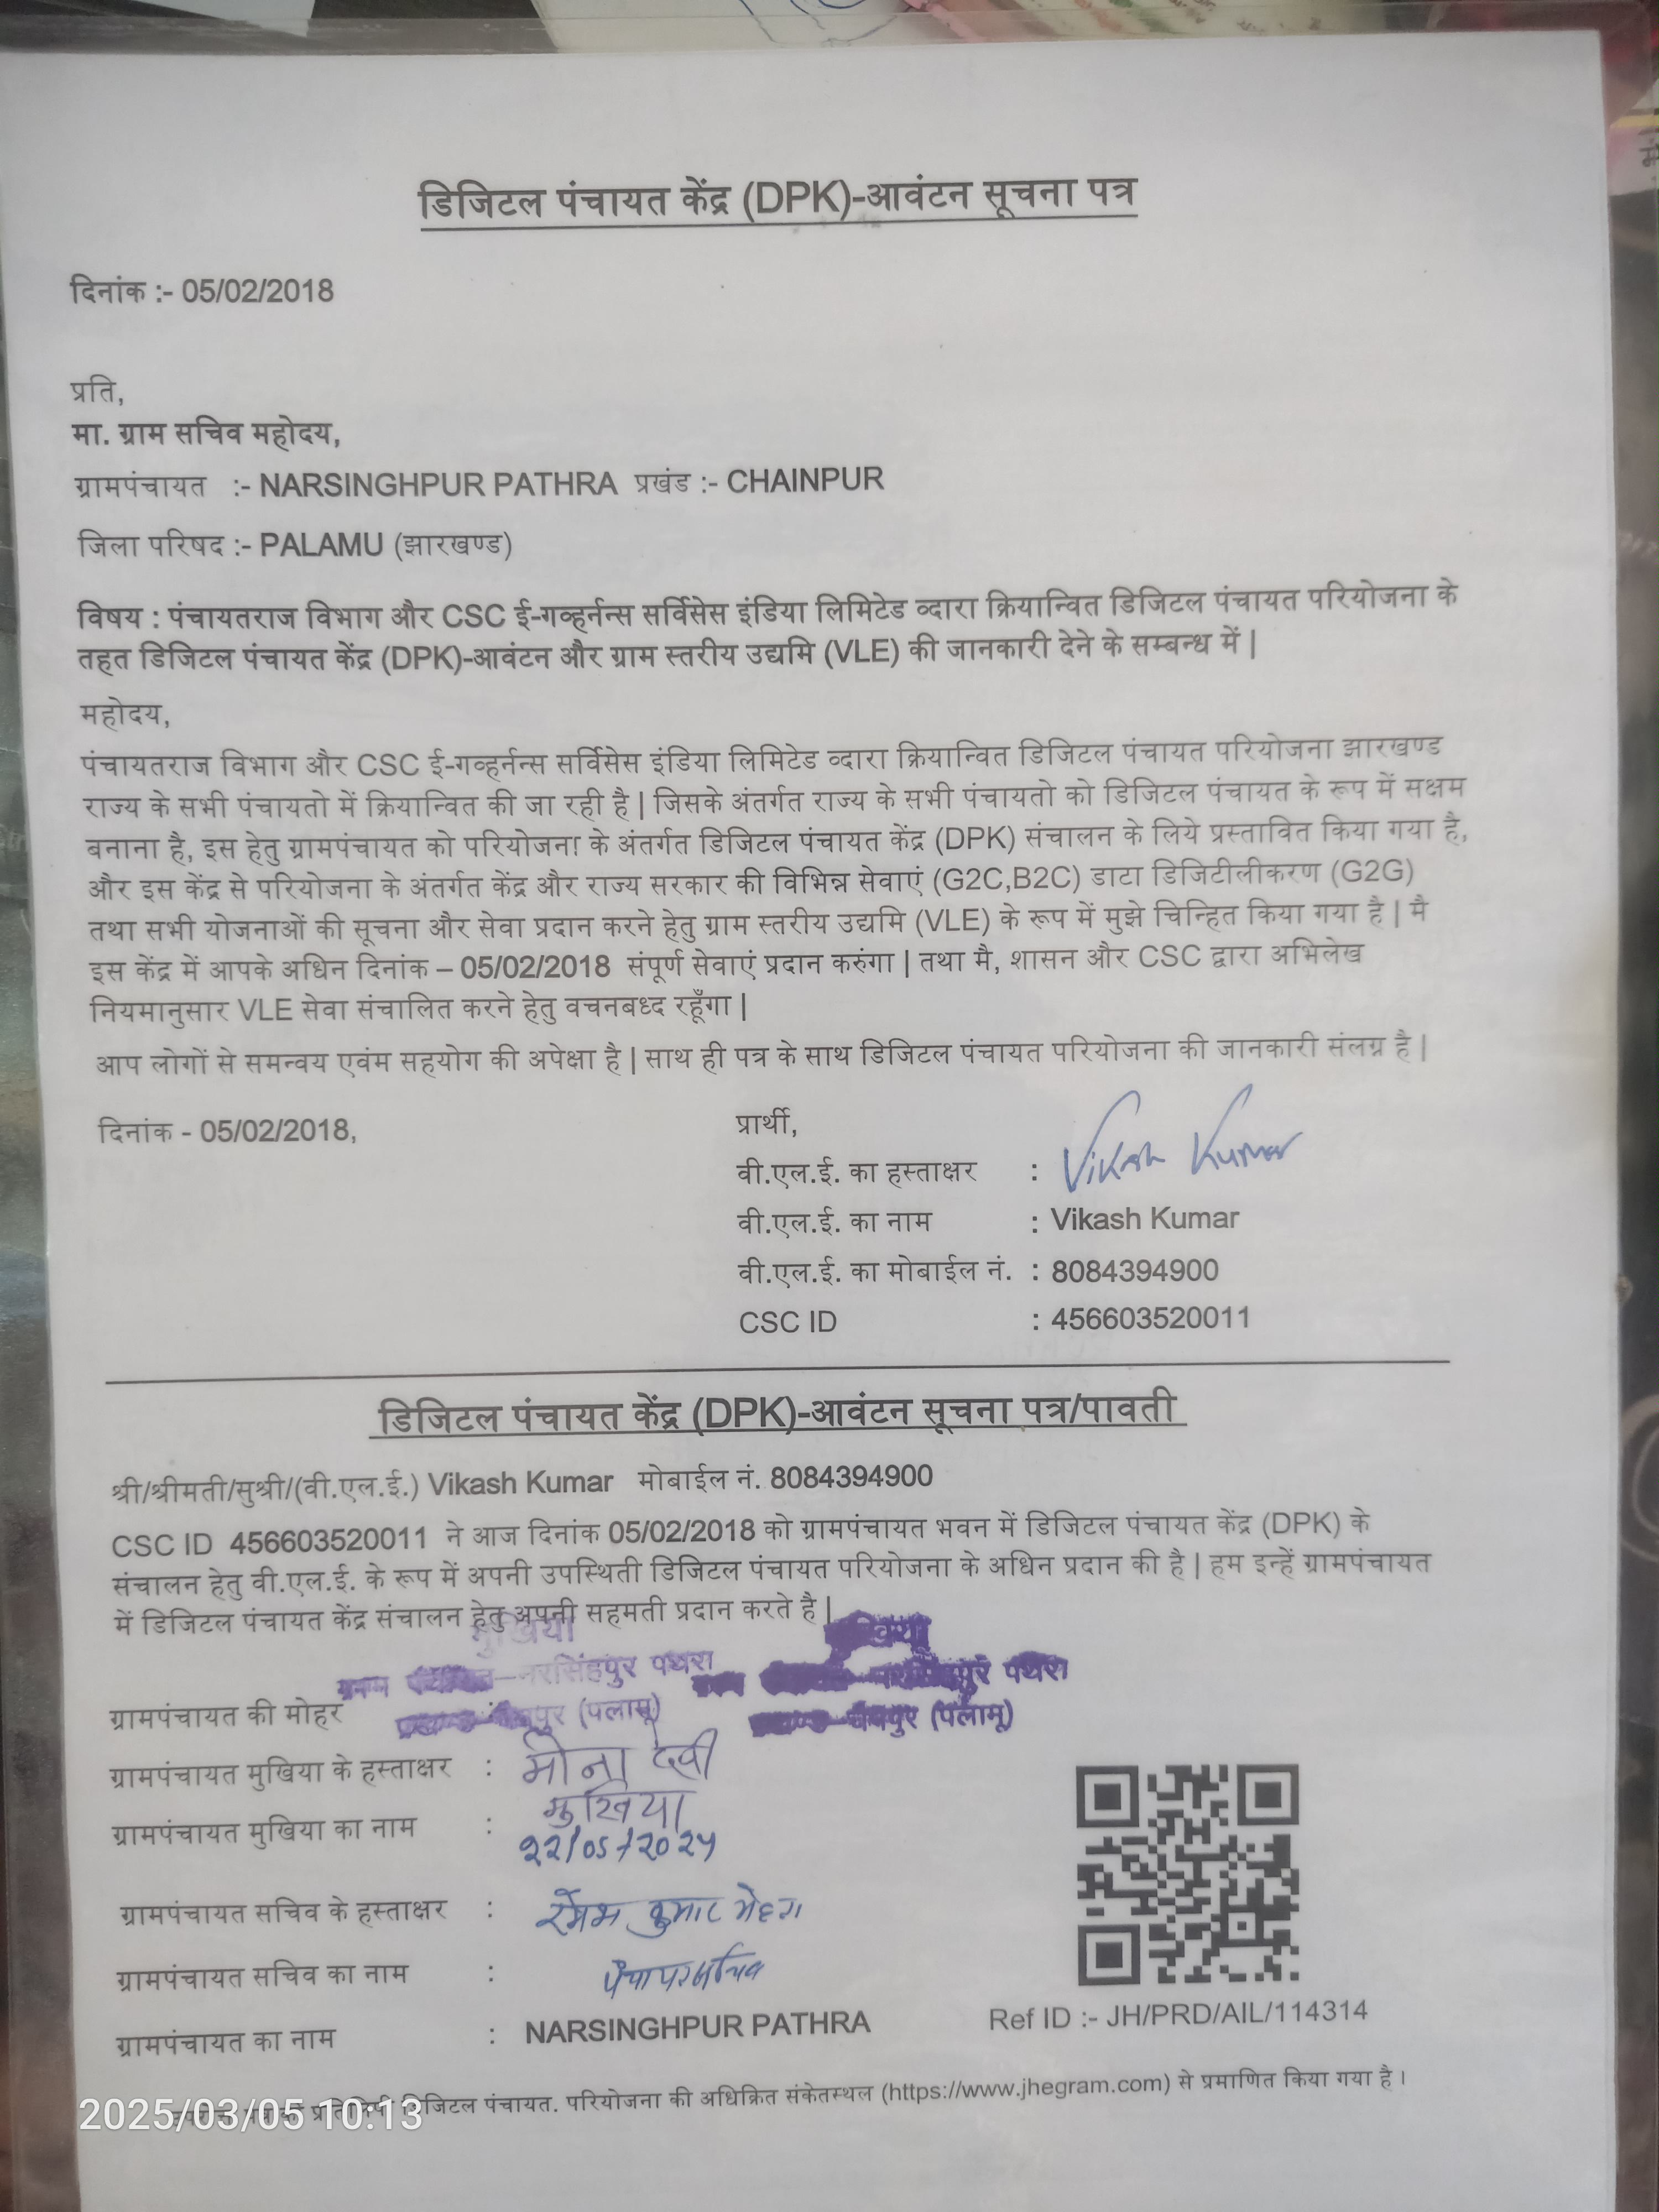 डिजिटल पंचायत केंद्र (DPK)-आवंटन सूचना पत्र
दिनांक :- 05/02/2018
प्रति,
मा. ग्राम सचिव महोदय,
ग्रामपंचायत :- NARSINGHPUR PATHRA प्रखंड :- CHAINPUR
जिला परिषद :- PALAMU (झारखण्ड)
विषय : पंचायतराज विभाग और CSC ई-गव्हर्नन्स सर्विसेस इंडिया लिमिटेड व्दारा क्रियान्वित डिजिटल पंचायत परियोजना के
तहत डिजिटल पंचायत केंद्र (DPK)-आवंटन और ग्राम स्तरीय उद्यमि (VLE) की जानकारी देने के सम्बन्ध में |
महोदय,
पंचायतराज विभाग और CSC ई-गव्हर्नन्स सर्विसेस इंडिया लिमिटेड व्दारा क्रियान्वित डिजिटल पंचायत परियोजना झारखण्ड
राज्य के सभी पंचायतो में क्रियान्वित की जा रही है | जिसके अंतर्गत राज्य के सभी पंचायतो को डिजिटल पंचायत के रूप में सक्षम
बनाना है, इस हेतु ग्रामपंचायत को परियोजना के अंतर्गत डिजिटल पंचायत केंद्र (DPK) संचालन के लिये प्रस्तावित किया गया है,
और इस केंद्र से परियोजना के अंतर्गत केंद्र और राज्य सरकार की विभिन्न सेवाएं (G2C,B2C) डाटा डिजिटीलीकरण (G2G)
तथा सभी योजनाओं की सूचना और सेवा प्रदान करने हेतु ग्राम स्तरीय उद्यमि (VLE) के रूप में मुझे चिन्हित किया गया है | मै
इस केंद्र में आपके अधिन दिनांक – 05/02/2018 संपूर्ण सेवाएं प्रदान करुंगा | तथा मै, शासन और CSC द्वारा अभिलेख
नियमानुसार VLE सेवा संचालित करने हेतु वचनबध्द रहूँगा |
आप लोगों से समन्वय एवंम सहयोग की अपेक्षा है | साथ ही पत्र के साथ डिजिटल पंचायत परियोजना की जानकारी संलग्न है |
दिनांक - 05/02/2018,
प्रार्थी,
वी.एल.ई. का हस्ताक्षर : Vikash Kumar
वी.एल.ई. का नाम : Vikash Kumar
वी.एल.ई. का मोबाईल नं. : 8084394900
CSC ID : 456603520011
डिजिटल पंचायत केंद्र (DPK)-आवंटन सूचना पत्र/पावती
श्री/श्रीमती/सुश्री/(वी.एल.ई.) Vikash Kumar मोबाईल नं. 8084394900
CSC ID 456603520011 ने आज दिनांक 05/02/2018 को ग्रामपंचायत भवन में डिजिटल पंचायत केंद्र (DPK) के
संचालन हेतु वी.एल.ई. के रूप में अपनी उपस्थिती डिजिटल पंचायत परियोजना के अधिन प्रदान की है | हम इन्हें ग्रामपंचायत
में डिजिटल पंचायत केंद्र संचालन हेतु अपनी सहमती प्रदान करते है |
मुखिया
नरसिंहपुर पथरा पथरा
ग्रामपंचायत की मोहर : (पलामू) (पलामू)
ग्रामपंचायत मुखिया के हस्ताक्षर : मोना देवी
मुखिया
ग्रामपंचायत मुखिया का नाम :
22/05/2024
ग्रामपंचायत सचिव के हस्ताक्षर : कुमार
ग्रामपंचायत सचिव का नाम :
ग्रामपंचायत का नाम : NARSINGHPUR PATHRA
Ref ID :- JH/PRD/AIL/114314
डिजिटल पंचायत. परियोजना की अधिक्रित संकेतस्थल (https://www.jhegram.com) से प्रमाणित किया गया है ।
2025/03/05 10:13